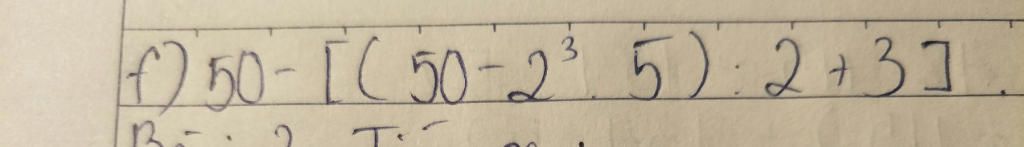 f) 50 - [( 50 - 2³ . 5) : 2 + 3] .